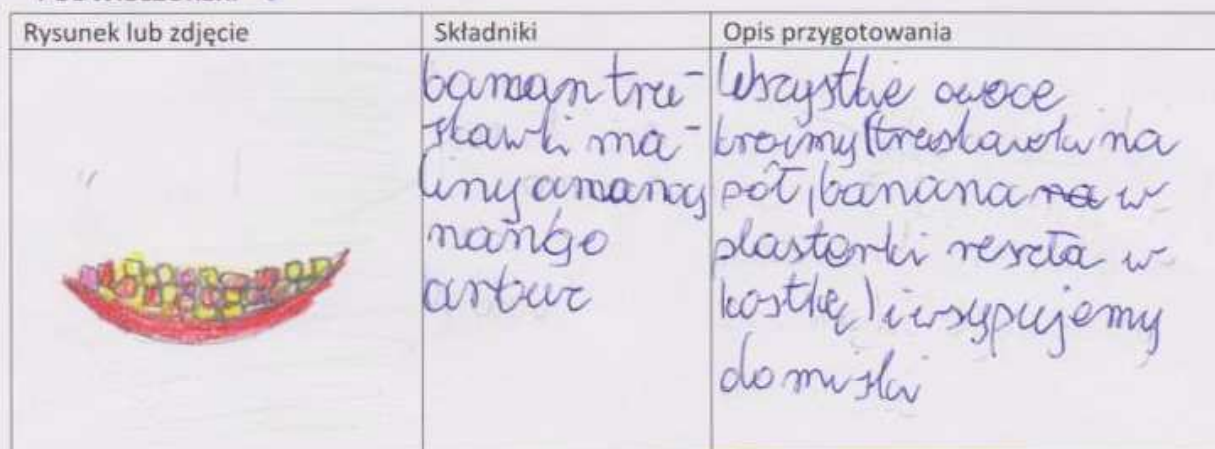 Rysunek lub zdjęcie
Składniki
Opis przygotowania
banan tru-
skawki ma-
liny ananas
mango
arbuz
Wszystkie owoce
kroimy (truskawki na
pół, banana na w
plasterki reszta w
kostkę) i wsypujemy
do miski